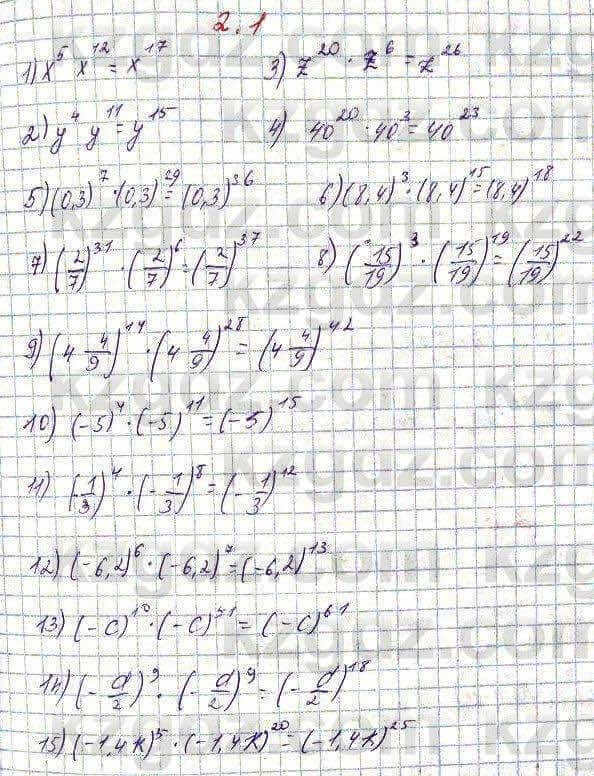 2.1
1) x⁵ x¹² = x¹⁷ 3) z²⁰ · z⁶ = z²⁶
2) y⁴ y¹¹ = y¹⁵ 4) 40²⁰ · 40³ = 40²³
5) (0,3)⁷ · (0,3)²⁹ = (0,3)³⁶ 6) (8,4)³ · (8,4)¹⁵ = (8,4)¹⁸
7) (2/7)³¹ · (2/7)⁶ = (2/7)³⁷ 8) (15/19)³ · (15/19)¹⁹ = (15/19)²²
9) (4 4/9)¹⁴ · (4 4/9)²⁸ = (4 4/9)⁴²
10) (-5)⁴ · (-5)¹¹ = (-5)¹⁵
11) (-1/3)⁴ · (-1/3)⁸ = (-1/3)¹²
12) (-6,2)⁶ · (-6,2)⁷ = (-6,2)¹³
13) (-c)¹⁰ · (-c)⁵¹ = (-c)⁶¹
14) (-d/2)⁹ · (-d/2)⁹ = (-d/2)¹⁸
15) (-1,4k)⁵ · (-1,4k)²⁰ = (-1,4k)²⁵
kzgdz.com